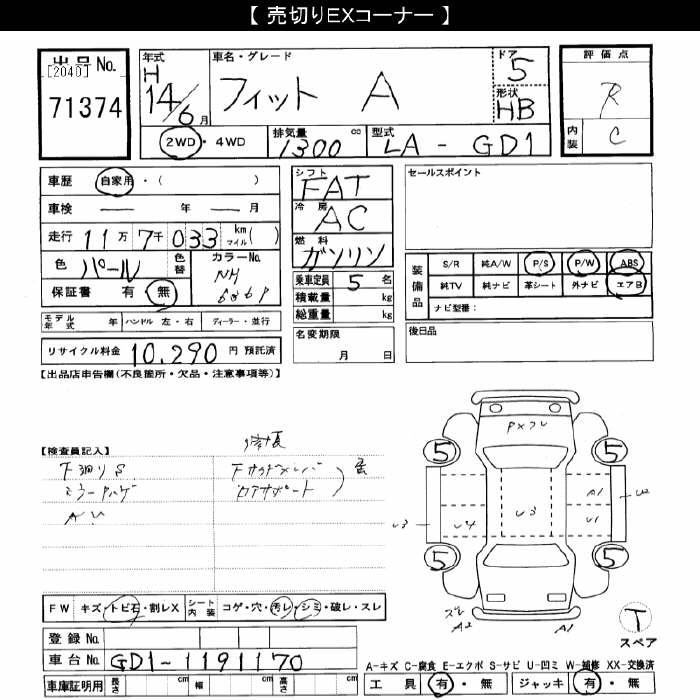 【 売切りEXコーナー 】
出品 No.
[2040]
71374
年式
H
14/6 月
車名・グレード
フィット A
ドア
5
形状
HB
評価点
R
内装
C
2WD・4WD
排気量
1300 cc
型式
LA - GD1
車歴 自家用・( )
車検 年 月
走行 11万 7千 033 km マイル( )
色 パール
色替
カラーNo.
NH
保証書 有 無
モデル年式 年 ハンドル 左・右 ディーラー・並行
リサイクル料金 10,290 円 預託済
シフト
FAT
冷房
AC
燃料
ガソリン
乗車定員 5 名
積載量 kg
総重量 kg
名変期限
月 日
セールスポイント
装備品
S/R 純A/W P/S P/W ABS
純TV 純ナビ 革シート 外ナビ エアB
ナビ型番:
後日品
【出品店申告欄(不良箇所・欠品・注意事項等)】
【検査員記入】
FW キズ・トビ石・割レX シート内装 コゲ・穴・汚レ・シミ・破レ・スレ
登録 No.
車台 No. GD1-1191170
車庫証明用 長さ cm 幅 cm 高さ cm
5
5
A1
U2
U3
U4
U3
U1
5
5
ズレ
A2
A1
T
スペア
A-キズ C-腐食 E-エクボ S-サビ U-凹ミ W-補修 XX-交換済
工具 有・無 ジャッキ 有・無